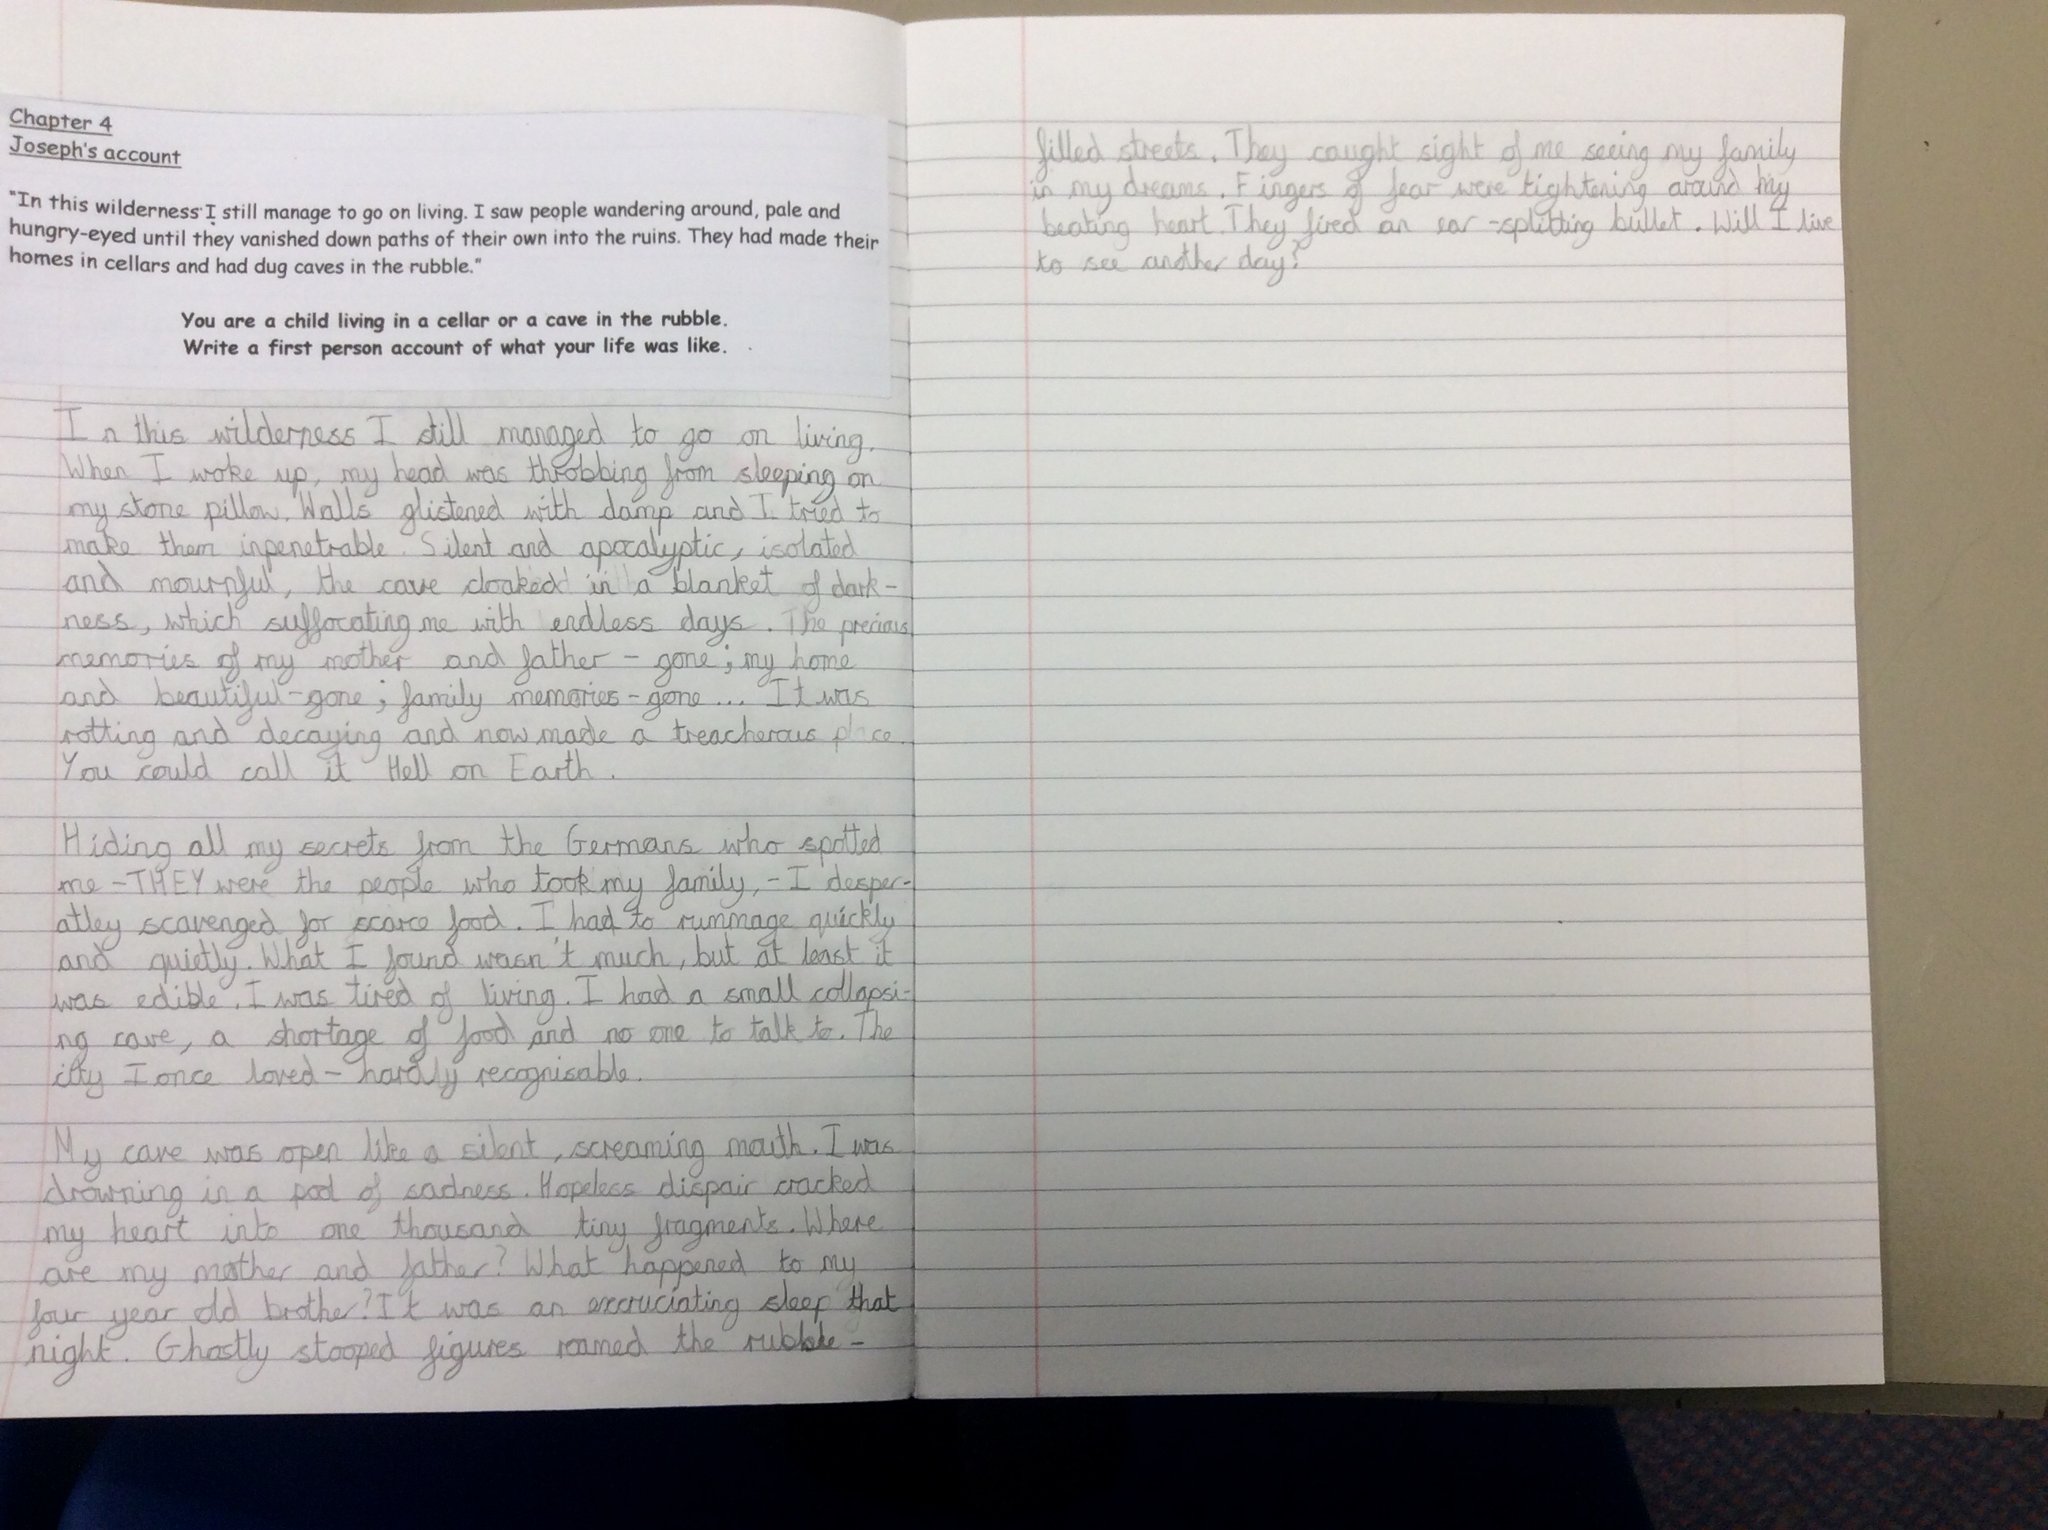 Chapter 4
Joseph's account
"In this wilderness I still manage to go on living. I saw people wandering around, pale and
hungry-eyed until they vanished down paths of their own into the ruins. They had made their
homes in cellars and had dug caves in the rubble."
You are a child living in a cellar or a cave in the rubble.
Write a first person account of what your life was like.
In this wilderness I still managed to go on living.
When I woke up, my head was throbbing from sleeping on
my stone pillow. Walls glistened with damp and I tried to
make them inpenetrable. Silent and apocalyptic, isolated
and mournful, the cave cloaked in a blanket of dark-
ness, which suffocating me with endless days. The precious
memories of my mother and father - gone; my home
and beautiful-gone; family memories-gone... It was
rotting and decaying and now made a treacherous place.
You could call it Hell on Earth.
Hiding all my secrets from the Germans who spotted
me - THEY were the people who took my family, - I desper-
atley scavenged for scarce food. I had to rummage quickly
and quietly. What I found wasn't much, but at least it
was edible. I was tired of living. I had a small collapsi-
ng cave, a shortage of food and no one to talk to. The
city I once loved - hardly recognisable.
My cave was open like a silent, screaming mouth. I was
drowning in a pool of sadness. Hopeless dispair cracked
my heart into one thousand tiny fragments. Where
are my mother and father? What happened to my
four year old brother? It was an excruciating sleep that
night. Ghostly stooped figures roamed the rubble-
filled streets. They caught sight of me seeing my family
in my dreams. Fingers of fear were tightening around my
beating heart. They fired an ear-splitting bullet. Will I live
to see another day?